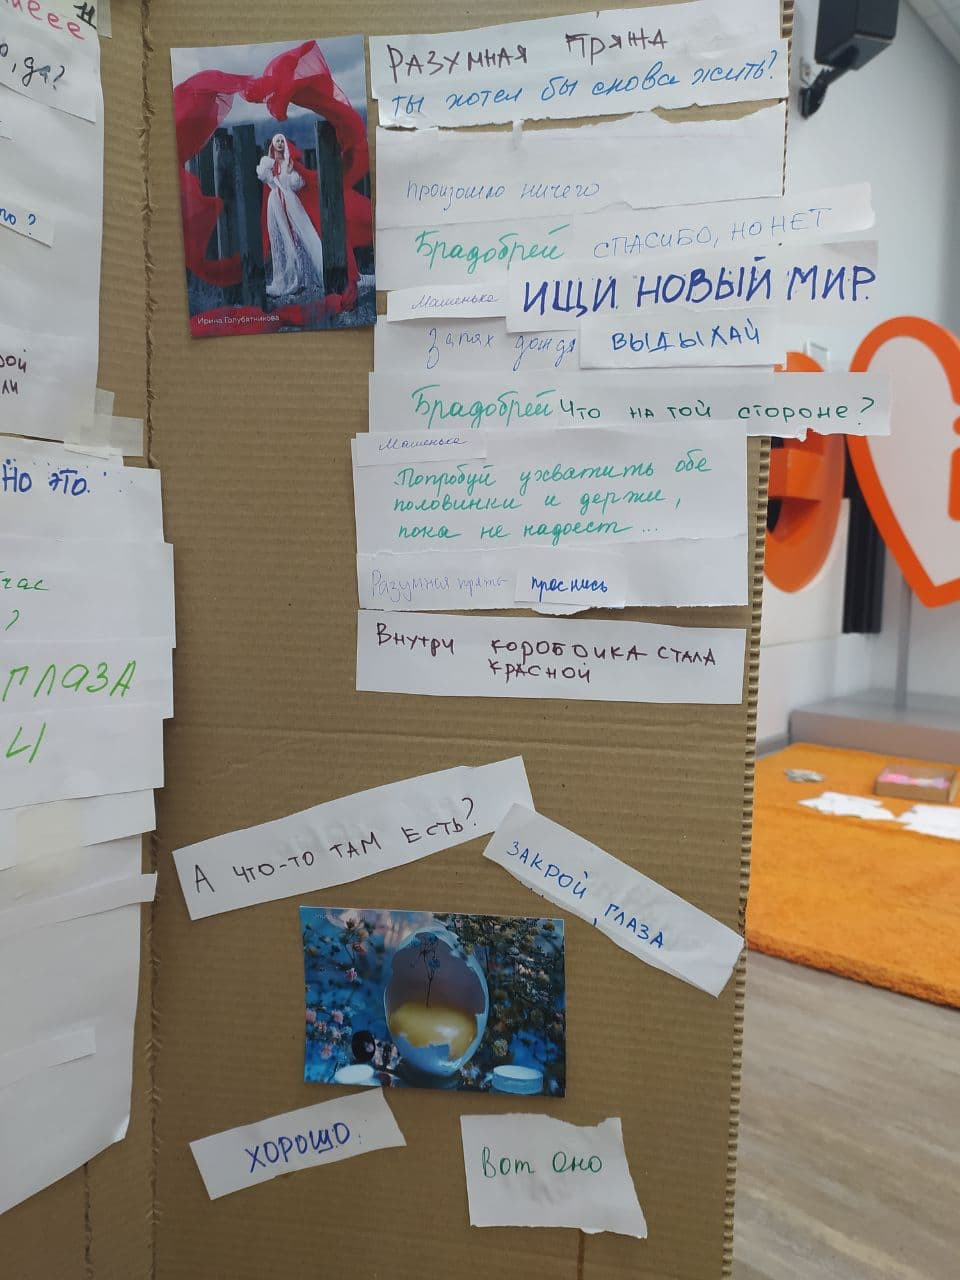 леее
о, да?
го?
рой
ли
НО ЭТО...
час
?
ГЛАЗА
Ы
Ирина Голубятникова
РАЗУМНАЯ ПРЯЖА
ты хотел бы снова жить?
произошло ничего
Брадобрей СПАСИБО, НО НЕТ
Машенька ИЩИ НОВЫЙ МИР
Запах дождя ВЫДЫХАЙ
Брадобрей Что на той стороне?
Машенька
Попробуй ухватить обе
половинки и держи,
пока не надоест...
Разумная пряжа проснись
Внутри коробочка стала
красной
А ЧТО-ТО ТАМ ЕСТЬ?
ЗАКРОЙ ГЛАЗА
ХОРОШО.
Вот оно